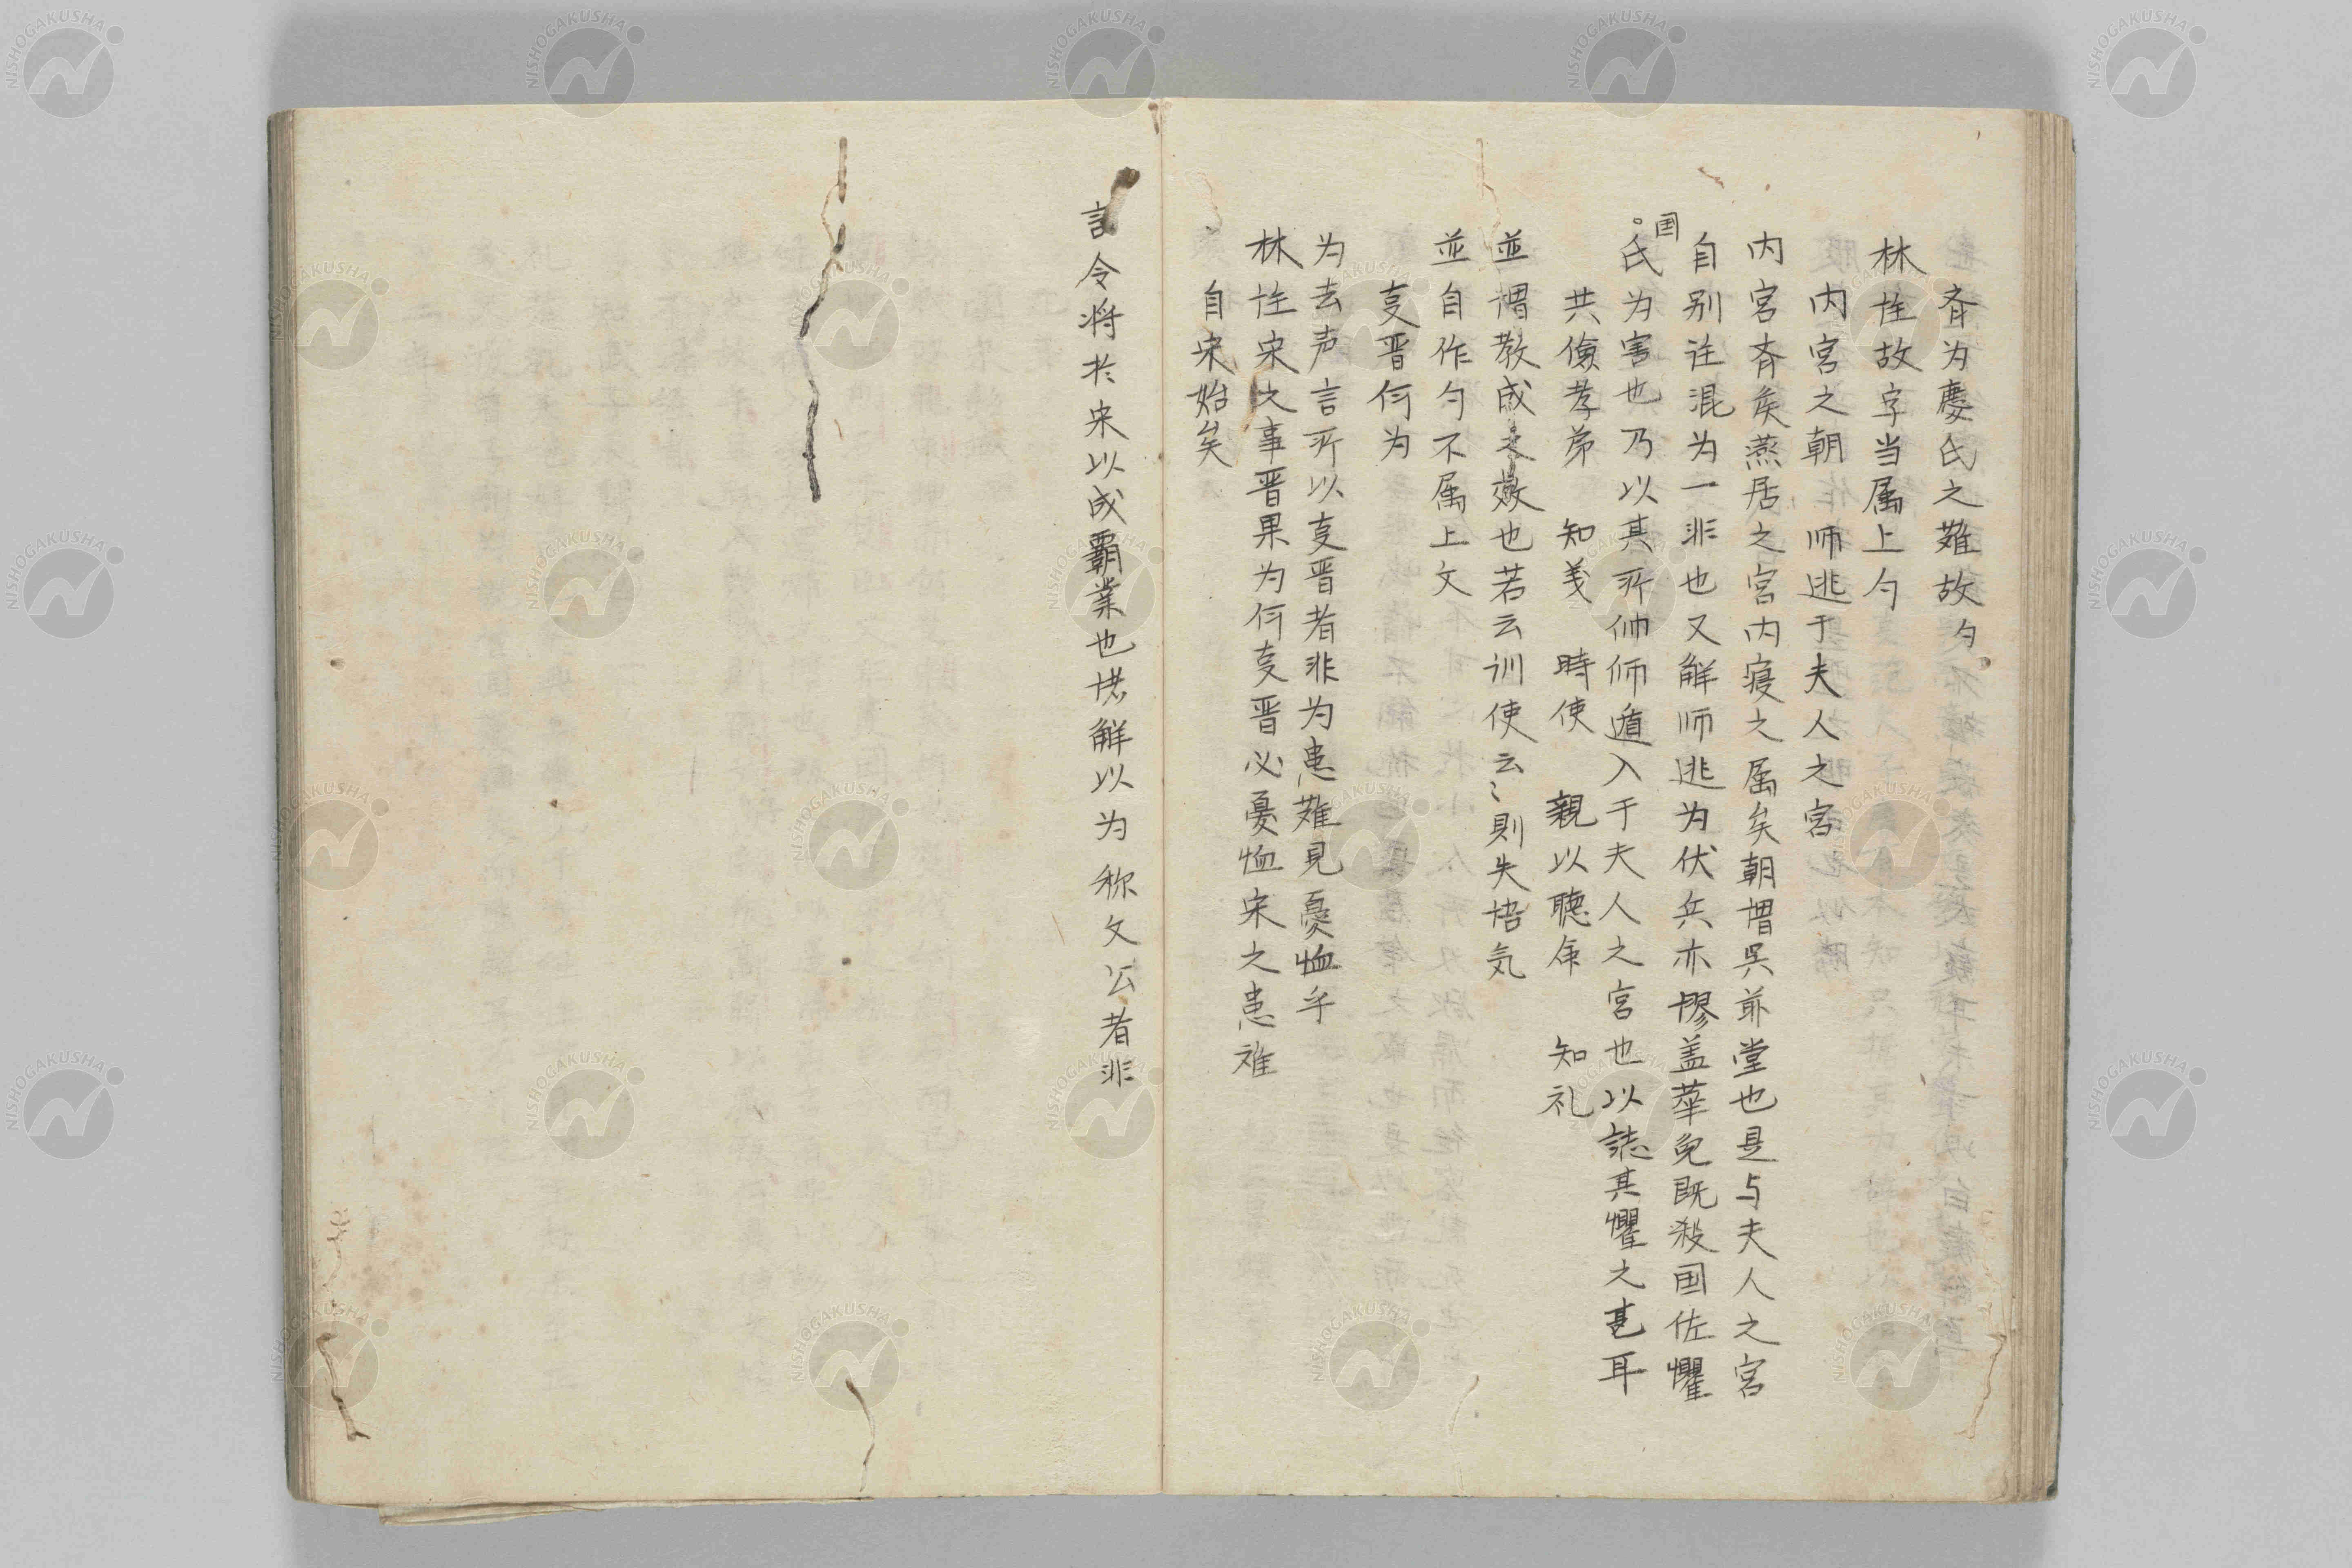 斉为慶氏之難故句
林注故字当属上句
内宮之朝 师逃于夫人之宮
内宮斉矦燕居之宮内寝之属矣朝謂其前堂也是与夫人之宮
自别注混为一非也又觧师逃为伏兵亦謬盖華免既殺国佐懼
国
氏为害也乃以其所帅师遁入于夫人之宮也以誌其懼之甚耳
共儉孝弟 知义 時使 親以聴命 知礼
並謂教成之效也若云训使云〻則失语気
並自作句不属上文
㕝晋何为
为去声言所以㕝晋者非为患難見憂恤乎
林注宋之事晋果为何㕝晋必憂恤宋之患难
自宋始矣
言今将於宋以成霸業也诸觧以为称文公者非
NISHOGAKUSHA